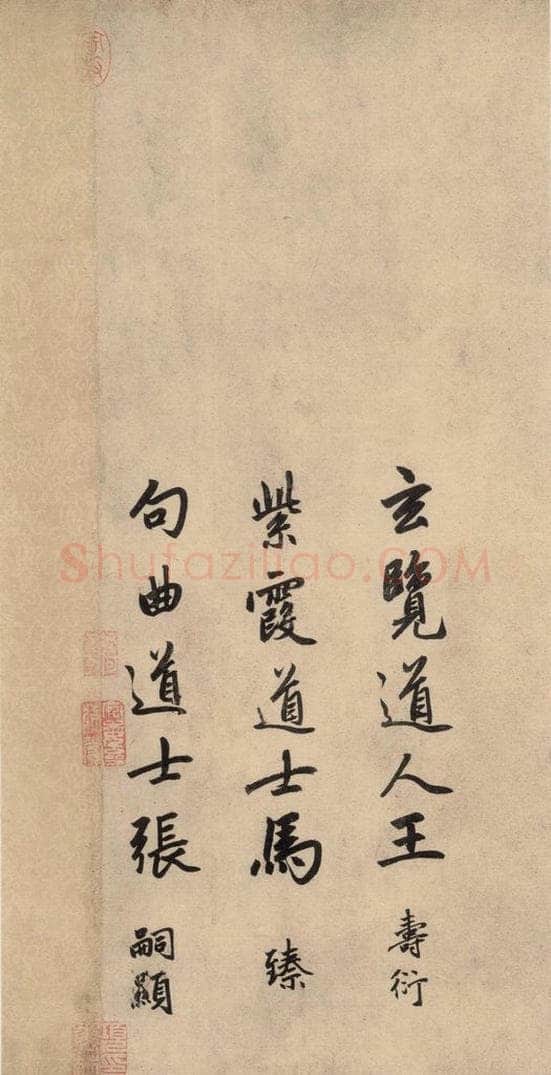 玄覽道人王壽衍
紫霞道士馬臻
句曲道士張嗣顯
Shufaziliao.COM